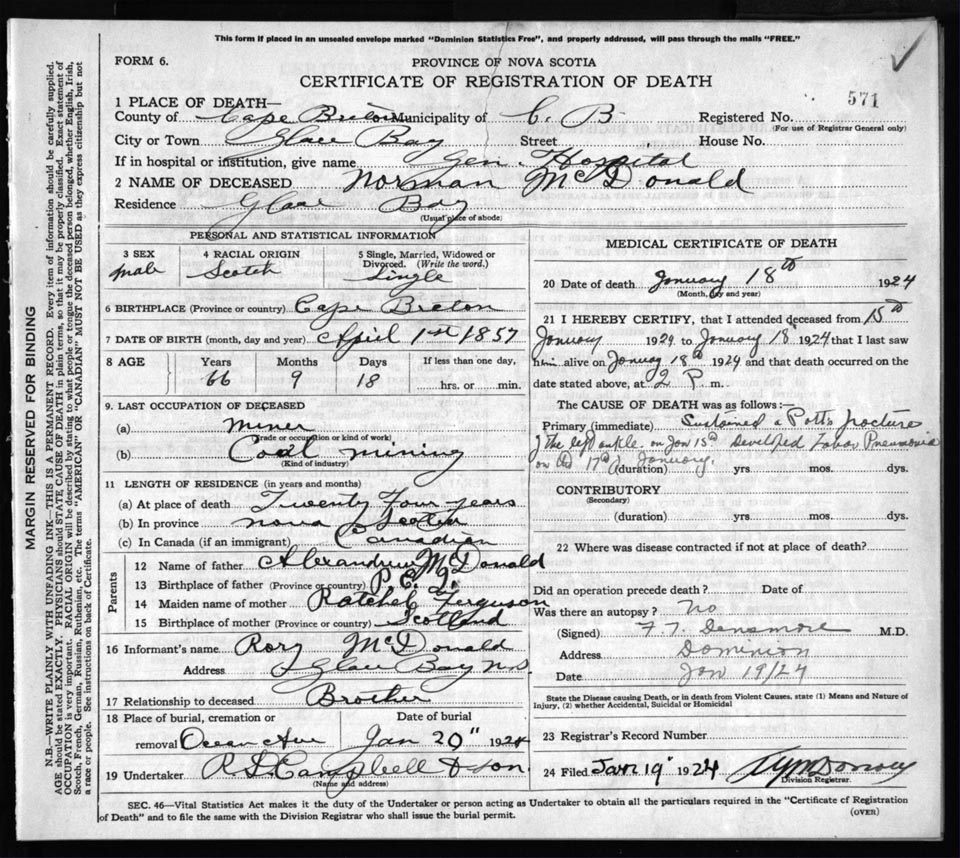 This form if placed in an unsealed envelope marked "Dominion Statistics Free", and properly addressed, will pass through the mails "FREE."
FORM 6.
PROVINCE OF NOVA SCOTIA
CERTIFICATE OF REGISTRATION OF DEATH
571
1 PLACE OF DEATH—
County of Cape Breton Municipality of C. B. Registered No.
(For use of Registrar General only)
City or Town Glace Bay Street House No.
If in hospital or institution, give name Gen. Hospital
2 NAME OF DECEASED Norman McDonald
Residence Glace Bay
(Usual place of abode)
PERSONAL AND STATISTICAL INFORMATION
3 SEX 4 RACIAL ORIGIN 5 Single, Married, Widowed or Divorced. (Write the word.)
male Scotch Single
6 BIRTHPLACE (Province or country) Cape Breton
7 DATE OF BIRTH (month, day and year) April 1st 1857
8 AGE Years Months Days If less than one day,
66 9 18 hrs. or min.
9. LAST OCCUPATION OF DECEASED
(a) miner
(Trade or occupation or kind of work)
(b) Coal mining
(Kind of industry)
11 LENGTH OF RESIDENCE (in years and months)
(a) At place of death Twenty Four years
(b) In province nova Scotia
(c) In Canada (if an immigrant) Canadian
Parents
12 Name of father McDonald
13 Birthplace of father (Province or country) P. E. I.
14 Maiden name of mother Ratchel Ferguson
15 Birthplace of mother (Province or country) Scotland
16 Informant's name Rory McDonald
Address Glace Bay N.S
17 Relationship to deceased Brother
18 Place of burial, cremation or removal Ocean Ave
Date of burial Jan 20" 1924
19 Undertaker R S Campbell & Son
(Name and address)
MEDICAL CERTIFICATE OF DEATH
20 Date of death January 18th 1924
(Month, day and year)
21 I HEREBY CERTIFY, that I attended deceased from 15th
January 1924 to January 18 1924 that I last saw
him alive on January 18th 1924 and that death occurred on the
date stated above, at 2 P. m.
The CAUSE OF DEATH was as follows:—
Primary (immediate) Sustained a Potts fracture
of the left ankle on Jan 15th Developed Lobar Pneumonia
on the 17th January.
(duration) yrs. mos. dys.
CONTRIBUTORY
(Secondary)
(duration) yrs. mos. dys.
22 Where was disease contracted if not at place of death?
Did an operation precede death? Date of
Was there an autopsy? no
(Signed) F. T. Densmore M.D.
Address Dominion
Date Jan 19/24
State the Disease causing Death, or in death from Violent Causes, state (1) Means and Nature of Injury, (2) whether Accidental, Suicidal or Homicidal
23 Registrar's Record Number
24 Filed Jan 19" 1924
Division Registrar.
SEC. 46—Vital Statistics Act makes it the duty of the Undertaker or person acting as Undertaker to obtain all the particulars required in the "Certificate of Registration
of Death" and to file the same with the Division Registrar who shall issue the burial permit.
(OVER)
MARGIN RESERVED FOR BINDING
N.B.—WRITE PLAINLY WITH UNFADING INK—THIS IS A PERMANENT RECORD. Every item of information should be carefully supplied.
AGE should be stated EXACTLY. PHYSICIANS should STATE CAUSE OF DEATH in plain terms, so that it may be properly classified. Exact statement of
OCCUPATION is very important. RACIAL ORIGIN will be described by stating to what people or tongue the deceased person belonged, whether English, Irish,
Scotch, French, German, Russian, Ruthenian, etc. The terms "AMERICAN" OR "CANADIAN" MUST NOT BE USED as they express citizenship but not
a race or people. See instructions on back of Certificate.